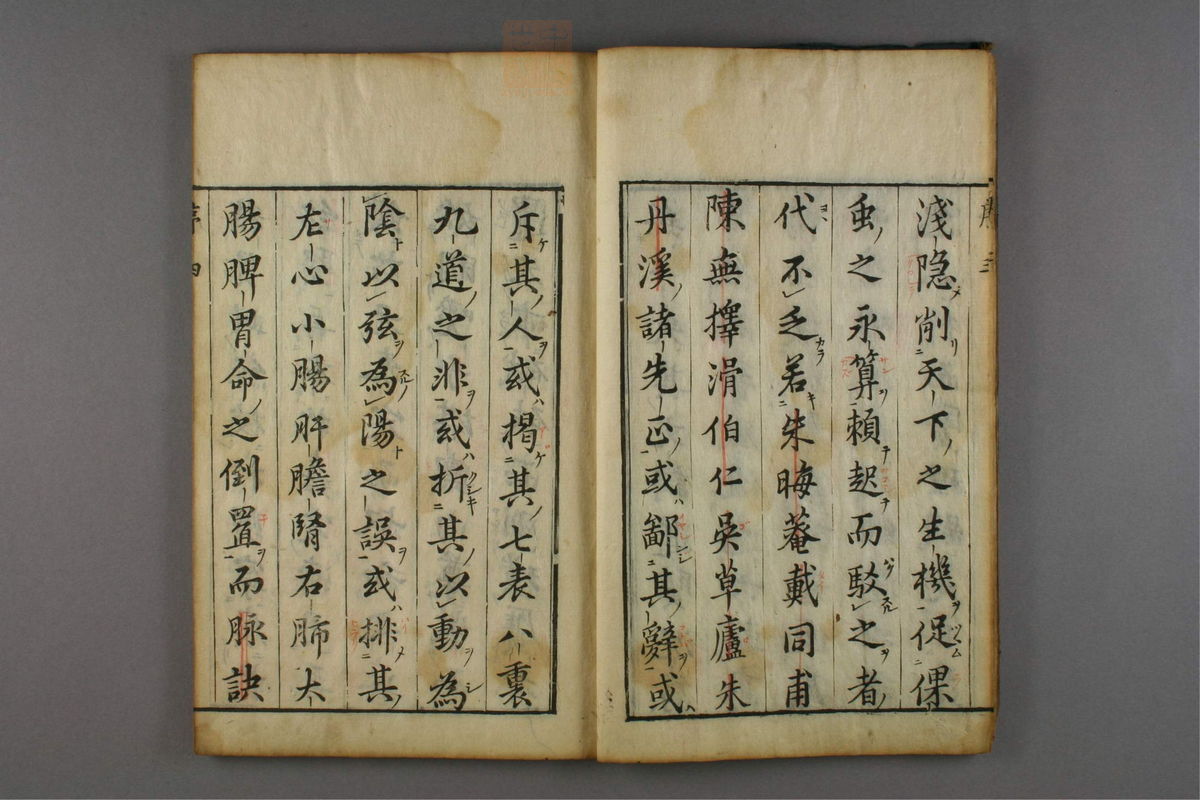 淺隐削天下之生機促倮
虫之永算頼起而駁之者
代不乏若朱晦菴戴同甫
陳無擇滑伯仁吳草廬朱
丹溪諸先正或鄙其辭或
斥其人或揭其七表八裏
九道之非或折其以動為
陰以弦為陽之誤或排其
左心小腸肝膽腎右肺大
腸脾胃命之倒置而脉訣
序四